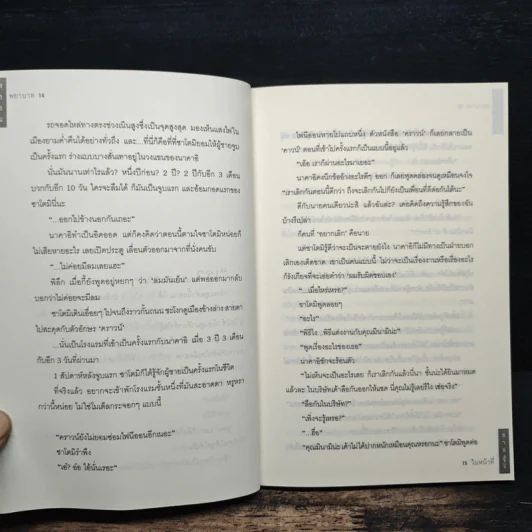 พยาบาท 14
รถจอดไหล่ทางตรงช่วงเนินสูงซึ่งเป็นจุดสูงสุด มองเห็นแสงไฟใน
เมืองยามค่ำคืนได้อย่างทั่วถึง และ...ที่นี่ก็คือที่ที่ซาโตมิยอมให้ผู้ชายจูบ
เป็นครั้งแรก ร่างแบบบางสั่นเทาอยู่ในวงแขนของนาคาอิ
นั่นมันนานเท่าไรแล้ว? หนึ่งปีก่อน? 2 ปี? 2 ปีกับอีก 3 เดือน
บวกกับอีก 10 วัน ใครจะลืมได้ ก็มันเป็นจูบแรก และอ้อมกอดแรกของ
ซาโตมินี่นะ
"...ออกไปข้างนอกกันเถอะ"
นาคาอิทำเป็นอิดออด แต่ก็คงคิดว่าตอนนี้ตามใจซาโตมิหน่อยก็
ไม่เสียหายอะไร เลยเปิดประตู เลื่อนตัวออกมาจากที่นั่งคนขับ
"...ไม่ค่อยมีลมเลยแฮะ"
พิลึก เมื่อกี้ยังพูดอยู่หยกๆ ว่า 'ลมมันเย็น' แต่พอออกมากลับ
บอกว่าไม่ค่อยจะมีลม
ซาโตมิเดินเอื่อยๆ ไปจนถึงราวกั้นถนน ชะโงกดูเมืองข้างล่าง สายตา
ไปสะดุดกับตัวอักษร 'คราวน์'
...นั่นเป็นโรงแรมที่เข้าเป็นครั้งแรกกับนาคาอิ เมื่อ 3 ปี 3 เดือน
กับอีก 3 วันที่ผ่านมา
1 สัปดาห์หลังจูบแรก ซาโตมิก็ได้รู้จักผู้ชายเป็นครั้งแรกในชีวิต
ที่จริงแล้ว อยากจะเข้าพักโรงแรมชั้นหนึ่งที่มันสะอาดตา หรูหรา
กว่านี้หน่อย ไม่ใช่โมเต็ลกระจอกๆ แบบนี้
"คราวน์ยังไม่ยอมซ่อมไฟนีออนอีกเนอะ"
ซาโตมิรำพึง
"เฮ้? อ้อ ไอ้นั่นเรอะ"
ไฟนีออนหายไปแถบหนึ่ง ตัวหนังสือ 'คราวน์' ก็เลยกลายเป็น
'คาวน์' ตอนที่เข้าไปครั้งแรกก็เป็นแบบนี้อยู่แล้ว
"เอ้อ เราก็ผ่านอะไรมาเยอะ"
"เราเลิกกันตอนนี้ดีกว่า ถึงจะเลิกกันไปก็ยังเป็นเพื่อนที่ดีต่อกันได้นะ"
ก็คนที่ "อยากเลิก" คือนาย
"...เมื่อไหร่เหรอ?"
ซาโตมิพูดลอยๆ
"อะไร"
"พิธีไง...พิธีแต่งงานกับคุณมินามิน่ะ"
"พูดเรื่องอะไรของเธอ"
นาคาอิชักจะร้อนตัว
"ไม่เห็นจะเป็นอะไรเลย ก็เราเลิกกันแล้วนี่นา ชั้นน่ะได้ยินมาหมด
แล้วละ ในบริษัทเค้าลือกันออกให้แซด นี่คุณไม่รู้เลยรึไง เซ่อจริง"
"ลือกันในบริษัท?"
"เพิ่งจะรู้เหรอ?"
"...อือ"
"คุณมินามิน่ะ เค้าไม่ได้ปากหนักเหมือนคุณหรอกนะ" ซาโตมิพูดต่อ
15 ใบหน้าที่